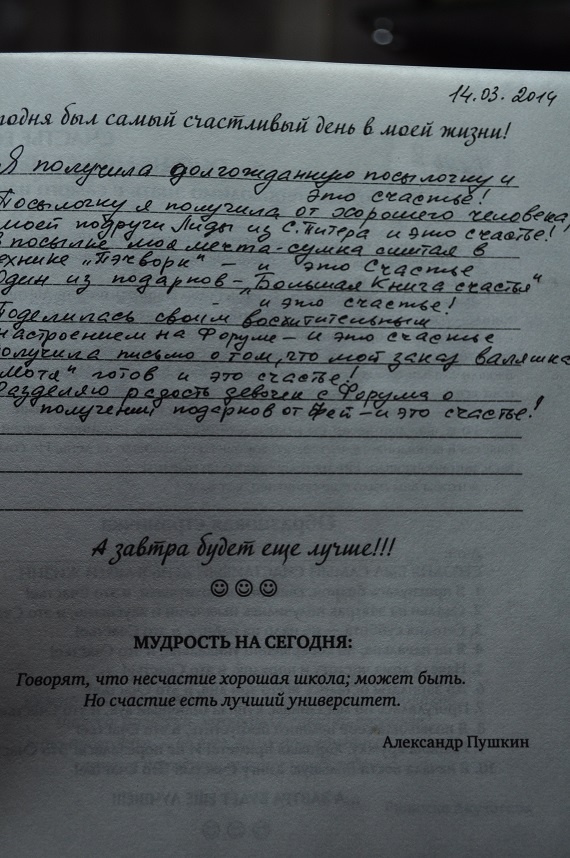 14.03.2014
годня был самый счастливый день в моей жизни!
Я получила долгожданную посылочку и
это счастье!
Посылочку я получила от хорошего человека,
моей подруги Лиды из С.Питера и это счастье!
в посылке моя мечта-сумка сшитая в
ехнике „Пэчворк" – и это Счастье
Один из подарков – „Большая Книга счастья"
- и это счастье!
Поделилась своим восхитительным
настроением на Форуме – и это счастье
получила письмо о том, что мой заказ валяшка
мотя" готов и это счастье!
Разделяю радость девочек с Форума о
получении подарков от Фей – и это счастье!
А завтра будет еще лучше!!!
☺☺☺
МУДРОСТЬ НА СЕГОДНЯ:
Говорят, что несчастие хорошая школа; может быть.
Но счастие есть лучший университет.
Александр Пушкин